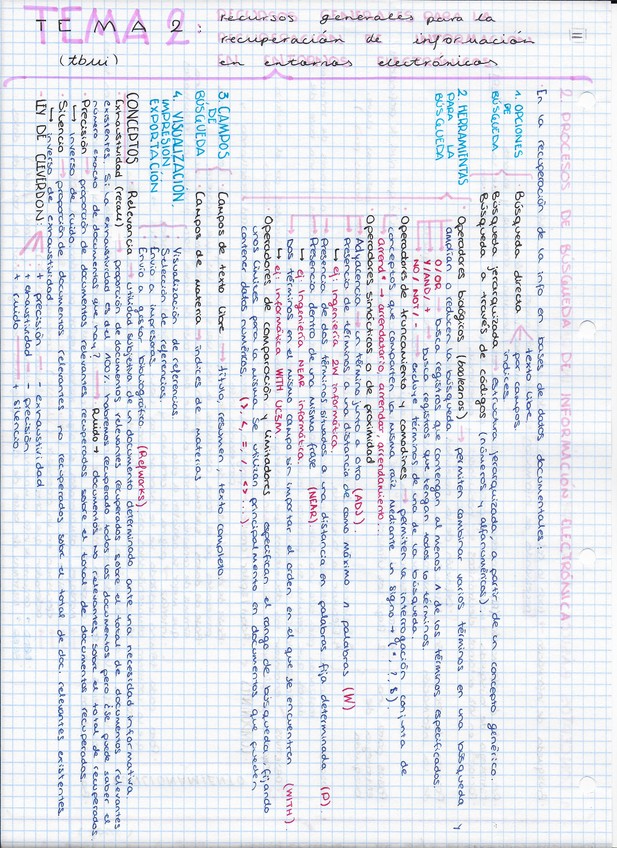 TEMA 2: recursos generales para la
recuperación de información
(tbui) en entornos electrónicos
11
2. PROCESOS DE BÚSQUEDA DE INFORMACIÓN ELECTRÓNICA
En la recuperación de la info en bases de datos documentales:
1. OPCIONES DE BÚSQUEDA
Búsqueda directa → texto libre
por campos
índices
Búsqueda jerarquizada → estructura jerarquizada, a partir de un concepto genérico.
Búsqueda a través de códigos (números y alfanuméricos).
2. HERRAMIENTAS PARA LA BÚSQUEDA
Operadores biológicos (booleanos) → permiten combinar varios términos en una búsqueda y
amplían o reducen la búsqueda.
O/OR → busca registros que contengan al menos 1 de los términos especificados.
Y/AND/+ → busca registros que tengan todos los términos.
NO/NOT/- → excluye términos de una de la búsqueda.
Operadores de truncamiento y comodines → permiten la interrogación conjunta de
conceptos que comparten la misma raíz mediante un signo → (*, ?, $).
arrend* → arrendatario, arrendar, arrendamiento...
Operadores sintácticos o de proximidad
Adyacencia → un término junto a otro (ADJ).
Presencia de términos a una distancia de como máximo n palabras (W)
ej: ingeniería 2W informática
Presencia de dos términos situados a una distancia en palabras fija determinada (P)
Presencia dentro de una misma frase (NEAR)
ej: ingeniería NEAR informática.
Dos términos en el mismo campo sin importar el orden en el que se encuentren (WITH)
ej: informática WITH UC3M
Operadores de comparación y limitadores → especifican el rango de búsqueda fijando
unos límites para la misma. Se utilizan principalmente en documentos que pueden
contener datos numéricos.
3. CAMPOS DE BÚSQUEDA
Campos de texto libre → título, resumen, texto completo
Campos de materia → índices de materias
4. VISUALIZACIÓN, IMPRESIÓN, EXPORTACIÓN
Visualización de referencias
Selección de referencias
Envío a impresoras
Envío a gestor bibliográfico (Refworks)
CONCEPTOS
Relevancia → utilidad subjetiva de un documento determinado ante una necesidad informativa.
Exhaustividad (recall) → proporción de documentos relevantes recuperados sobre el total de documentos relevantes
existentes. Si la exhaustividad es del 100% habremos recuperado todos los documentos pero ¿se puede saber el
número exacto de documentos que hay?
Ruido → documentos no relevantes sobre el total de recuperados.
Precisión → proporción de documentos relevantes recuperados sobre el total de documentos recuperados.
↳ inverso de ruido
Silencio → proporción de documentos relevantes no recuperados sobre el total de doc. relevantes existentes
↳ inverso de exhaustividad
- LEY DE CLEVERDON
+ precisión - exhaustividad
+ exhaustividad - precisión
+ ruido + silencio